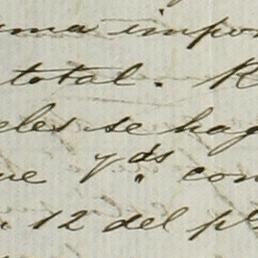 uma impor
total. R
eles se hag
ue Vds con
12 del p